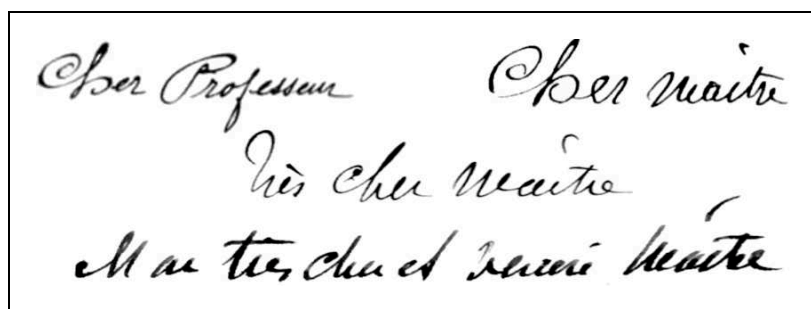 Cher Professeur Cher maître
Très cher Maître
Mon très cher et vénéré Maître